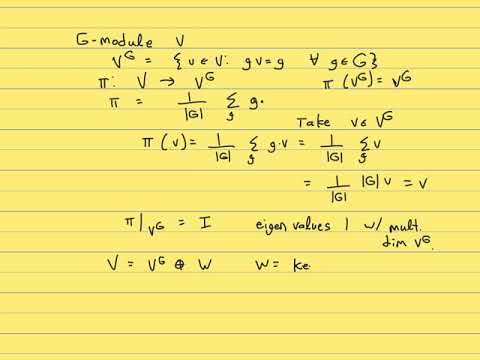 G-module V
V^G = {v ∈ V: gv = g ∀ g ∈ G}
π: V → V^G π(V^G) = V^G
π = 1/|G| Σ_g g·
Take v ∈ V^G
π(v) = 1/|G| Σ_g g·v = 1/|G| Σ_g v
= 1/|G| |G| v = v
π|_{V^G} = I eigen values 1 w/ mult.
dim V^G.
V = V^G ⊕ W W = ke